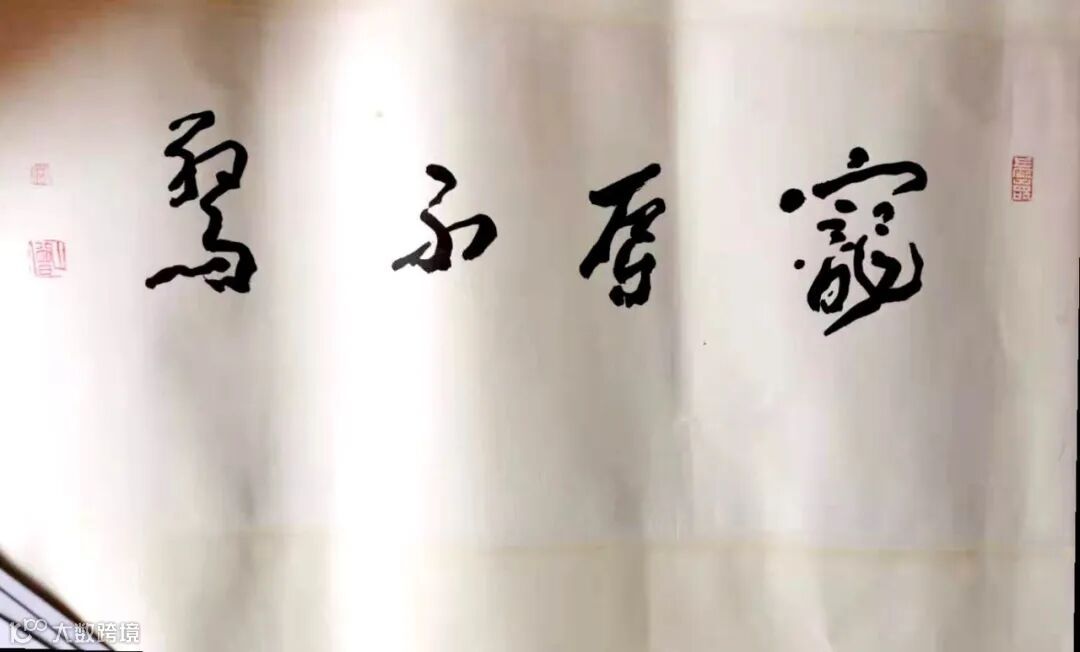 寵辱不驚
大数跨境